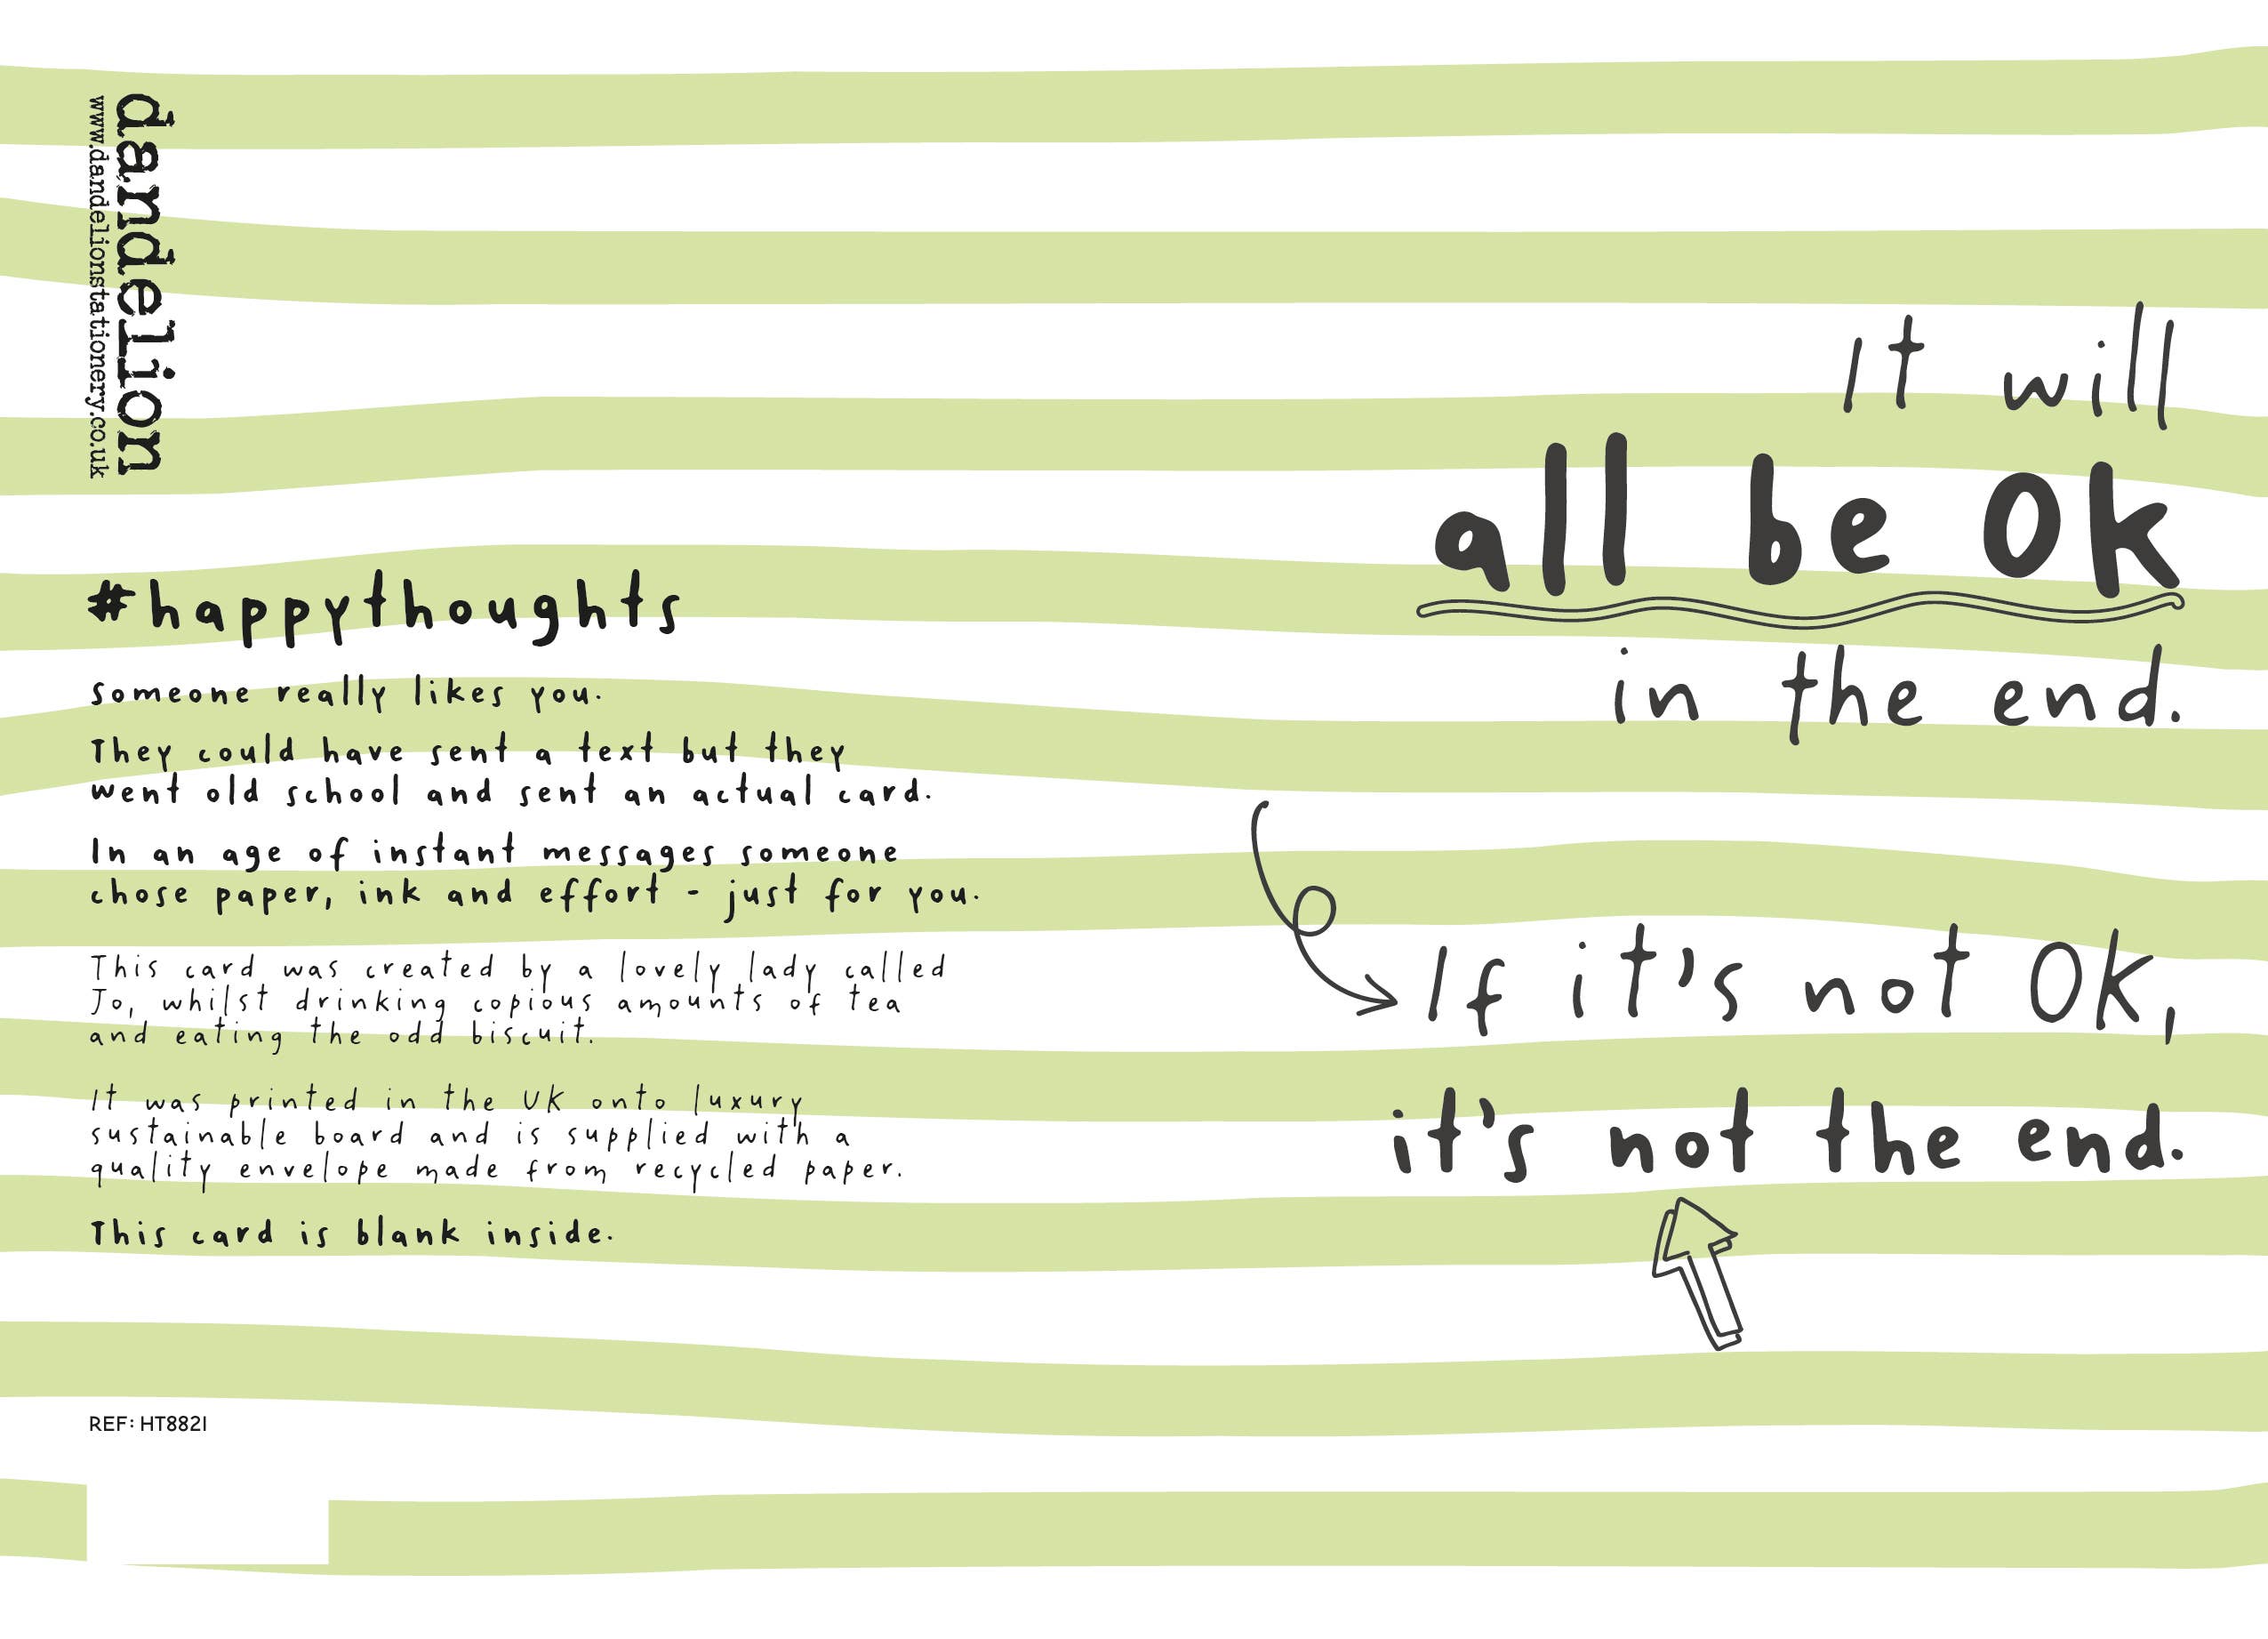 dandelion
www.dandelionstationery.co.uk
#happythoughts
Someone really likes you.
They could have sent a text but they
went old school and sent an actual card.
In an age of instant messages someone
chose paper, ink and effort - just for you.
This card was created by a lovely lady called
Jo, whilst drinking copious amounts of tea
and eating the odd biscuit.
It was printed in the UK onto luxury
sustainable board and is supplied with a
quality envelope made from recycled paper.
This card is blank inside.
REF: HT8821
It will
all be OK
in the end.
If it's not OK,
it's not the end.